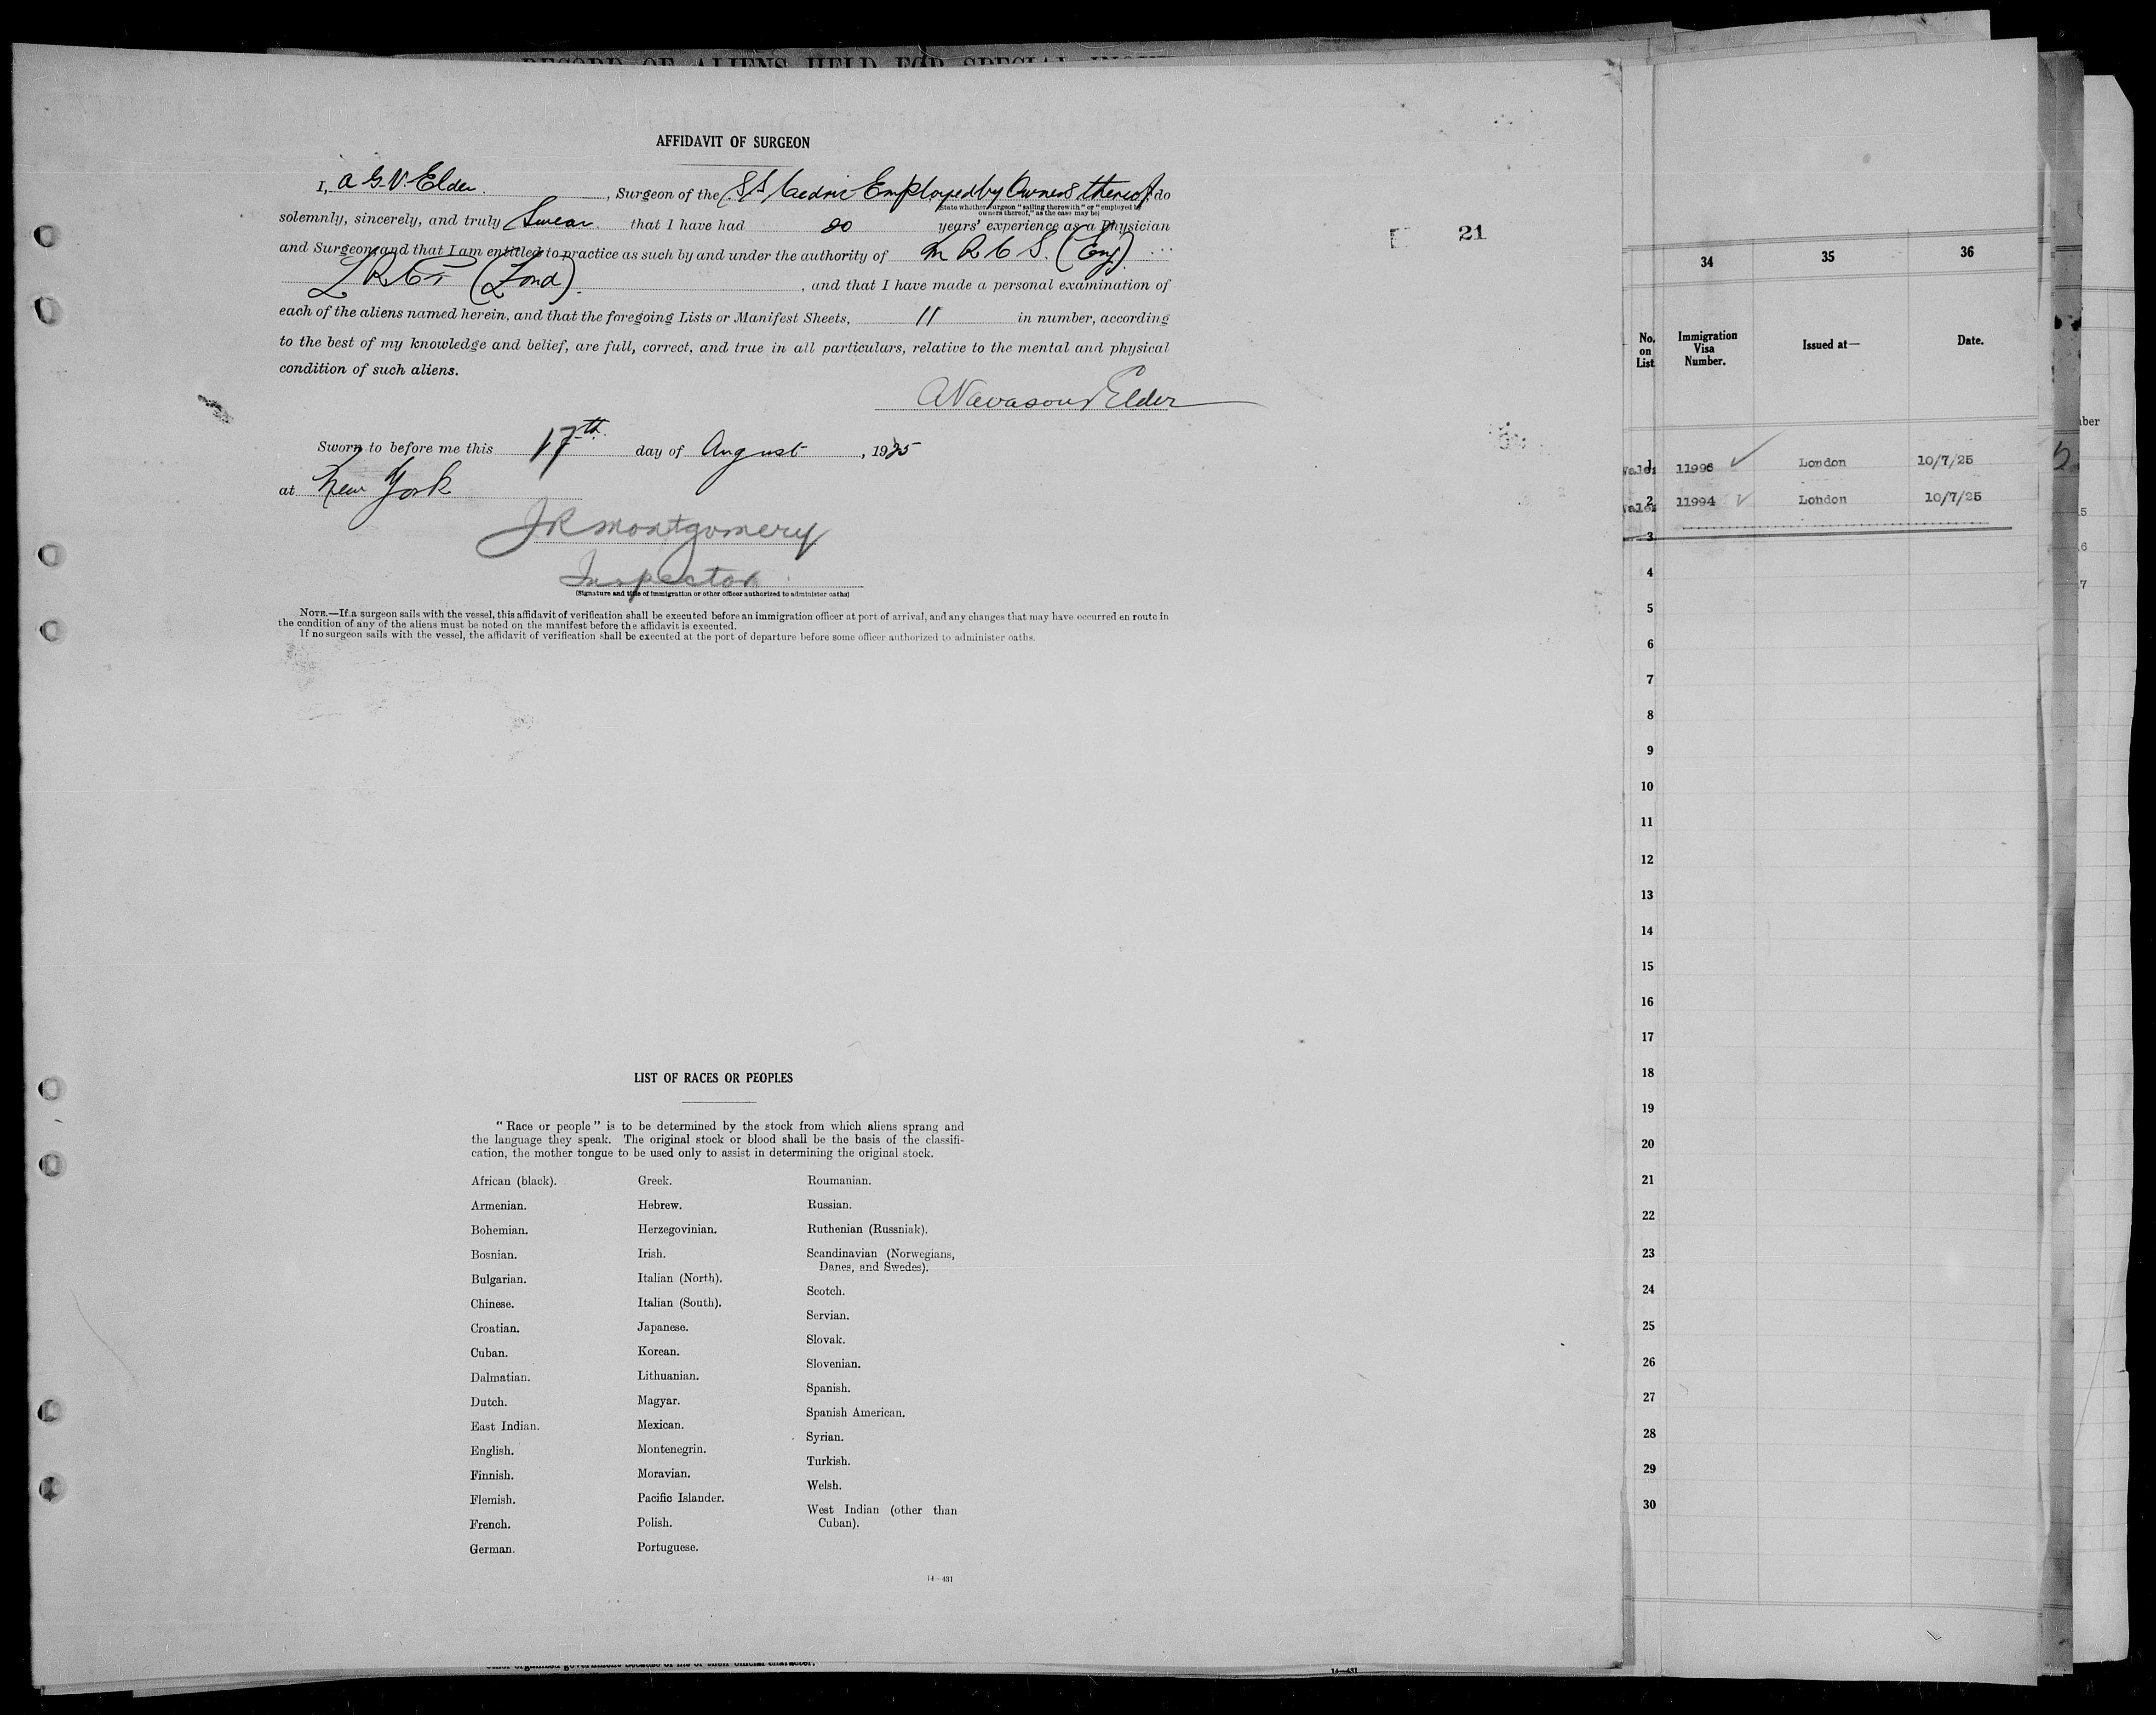 RECORD OF ALIENS HELD FOR SPECIAL
AFFIDAVIT OF SURGEON
I, A G. V. Elder, Surgeon of the SS Cedric Employed by Owners thereof, do
(State whether surgeon "sailing therewith" or "employed by
owners thereof," as the case may be)
solemnly, sincerely, and truly Swear that I have had 20 years' experience as a Physician
and Surgeon, and that I am entitled to practice as such by and under the authority of M R C S. (Eng).
L R C P (Lond)., and that I have made a personal examination of
each of the aliens named herein, and that the foregoing Lists or Manifest Sheets, 11 in number, according
to the best of my knowledge and belief, are full, correct, and true in all particulars, relative to the mental and physical
condition of such aliens.
A Vavasour Elder
Sworn to before me this 17th day of August, 1925
at New York
JR Montgomery
Inspector
(Signature and title of immigration or other officer authorized to administer oaths)
NOTE.—If a surgeon sails with the vessel, this affidavit of verification shall be executed before an immigration officer at port of arrival, and any changes that may have occurred en route in
the condition of any of the aliens must be noted on the manifest before the affidavit is executed.
If no surgeon sails with the vessel, the affidavit of verification shall be executed at the port of departure before some officer authorized to administer oaths.
21
LIST OF RACES OR PEOPLES
"Race or people" is to be determined by the stock from which aliens sprang and
the language they speak. The original stock or blood shall be the basis of the classifi-
cation, the mother tongue to be used only to assist in determining the original stock.
African (black).
Armenian.
Bohemian.
Bosnian.
Bulgarian.
Chinese.
Croatian.
Cuban.
Dalmatian.
Dutch.
East Indian.
English.
Finnish.
Flemish.
French.
German.
Greek.
Hebrew.
Herzegovinian.
Irish.
Italian (North).
Italian (South).
Japanese.
Korean.
Lithuanian.
Magyar.
Mexican.
Montenegrin.
Moravian.
Pacific Islander.
Polish.
Portuguese.
Roumanian.
Russian.
Ruthenian (Russniak).
Scandinavian (Norwegians,
Danes, and Swedes).
Scotch.
Servian.
Slovak.
Slovenian.
Spanish.
Spanish American.
Syrian.
Turkish.
Welsh.
West Indian (other than
Cuban).
14—431
other organized government because of his or their official character.
14—431
34 35 36
No. on List Immigration Visa Number. Issued at— Date.
1 11996 London 10/7/25
2 11994 London 10/7/25
3
4
5
6
7
8
9
10
11
12
13
14
15
16
17
18
19
20
21
22
23
24
25
26
27
28
29
30